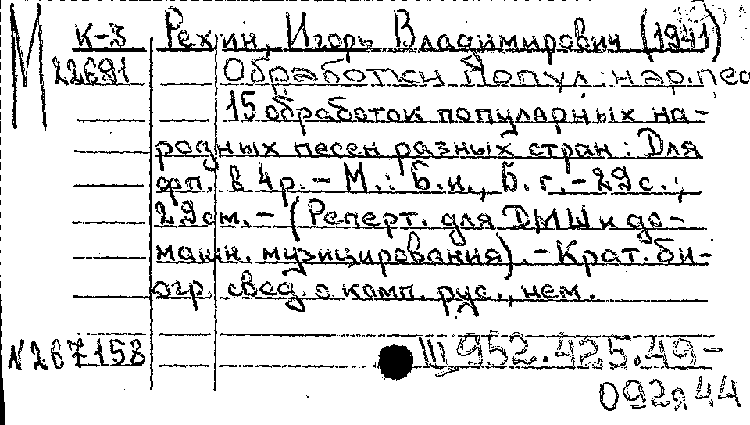 М К-3 Рехин, Игорь Владимирович (1941)
22691 Обработки попул. нар. пес
15 обработок популярных на-
родных песен разных стран: Для
фп. в 4 р. - М.: Б.и., Б.г. - 29 с.;
29 см. - (Реперт. для ДМШ и до-
машн. музицирования). - Крат. би-
огр. свед. о комп. рус., нем.
N267158 III 952.425.49-
092я44